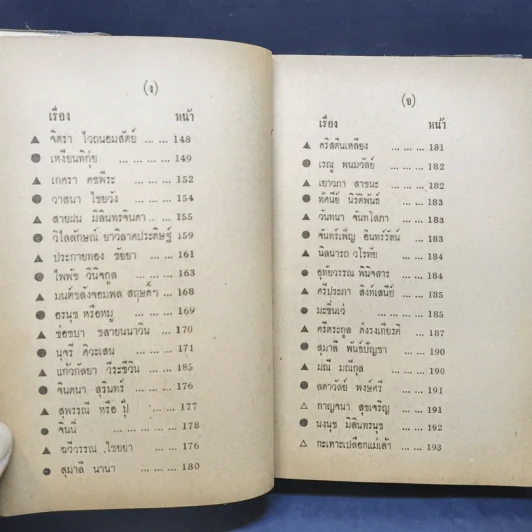 (ง)
เรื่อง หน้า
▲ จิตรา ไวถนอมสัตย์ ... ... 148
● เหงียนทิกุ่ย ... ... ... ... 149
▲ เกศรา คชพีระ ... ... ... 152
● วาสนา ไชยวัง ... ... ... 154
▲ สายฝน มิลินทรจินดา ... ... 155
● วิไลลักษณ์ ยาวิลาศประดิษฐ์ 159
▲ ประกายทอง ชัยยา ... ... 161
● ไพพัช วินิจกูล ... ... 163
▲ มนต์ขลังจอมพล สฤษดิ์ฯ ... 168
● อรนุช หรือหมู ... ... 169
▲ ช่อชบา ชลายนนาวิน ... 170
● นุจรี ศิวะเสน ... ... 171
▲ แก้วกัลยา วีระชีวิน ... ... 185
● จินตนา สุรินทร์ ... ... 176
▲ สุพรรณี หรือ ปุ๋ ... ... 177
● จินนี่ ... ... ... ... 178
▲ ฉวีวรรณ ไชยยา ... ... 176
● สุมาลี นานา ... ... ... 180
(จ)
เรื่อง หน้า
▲ คริสตินเหลียง ... ... ... 181
● เรณู พนมวัลย์ ... ... 182
▲ เยาวภา สาชนะ ... ... 182
● ทัศนีย์ นิรัติพันธ์ ... ... 183
▲ วันทนา จันทโสภา ... ... 183
● จันทร์เพ็ญ อินทร์รัตน์ ... ... 183
▲ นิลนารถ วโรทัย ... ... 184
● อุทัยวรรณ พินิจสาร ... ... 184
▲ ศรีประภา สิงห์เสนีย์ ... ... 185
● มะขิ่นเว่ ... ... ... 185
▲ ศรีตระกูล ดำรงเกียรติ ... ... 187
● สุมาลี พันธ์ปัญชา ... ... 190
▲ มณี มณีกุล ... ... 190
● ลดาวัลย์ พงษ์ศรี ... ... 191
△ กาญจนา สุขเจริญ ... ... 191
● นงนุช มิลินทรนุช ... ... 192
△ กะเทาะเปลือกแม่เล้า ... ... 193